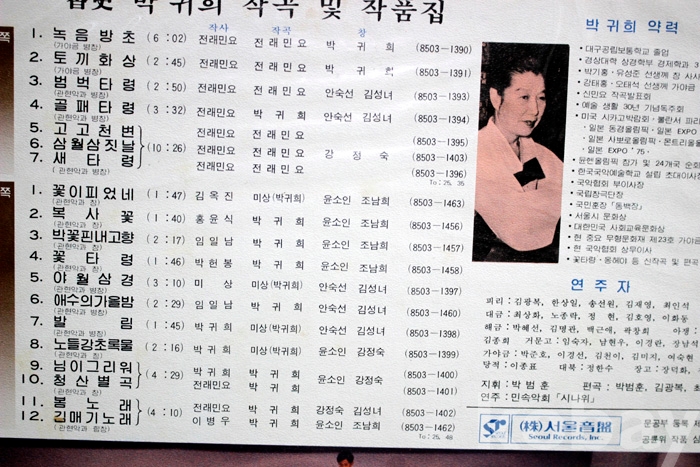 박귀희 작곡 및 작품집
작사 작곡 창
1. 녹음방초 (6:02) 전래민요 전래민요 박귀희 (8503-1390)
(가야금 병창)
2. 토끼화상 (2:45) 전래민요 전래민요 박귀희 (8503-1391)
(가야금 병창)
3. 범벅타령 (2:50) 전래민요 전래민요 안숙선 김성녀 (8503-1393)
(관현악과 병창)
4. 골패타령 (3:32) 전래민요 박귀희 안숙선 김성녀 (8503-1394)
(관현악과 병창)
5. 고고천변 전래민요 전래민요 (8503-1395)
6. 삼월삼짓날 (10:26) 전래민요 전래민요 강정숙 (8503-1403)
7. 새타령 전래민요 전래민요 (8503-1396)
(관현악과 병창)
To: 25, 35
쪽
1. 꽃이피었네 (1:47) 김옥진 미상(박귀희) 윤소인 조남희 (8503-1463)
(관현악과 창)
2. 복사꽃 (1:40) 홍윤식 박귀희 윤소인 조남희 (8503-1456)
(관현악과 창)
3. 박꽃핀내고향 (2:17) 임일남 박귀희 윤소인 조남희 (8503-1457)
(관현악과 창)
4. 꽃타령 (1:46) 박헌봉 박귀희 윤소인 조남희 (8503-1458)
(관현악과 창)
5. 야월삼경 (3:10) 미상 미상(박귀희) 안숙선 김성녀 (8503-1397)
(관현악과 병창)
6. 애수의가을밤 (2:29) 임일남 박귀희 안숙선 김성녀 (8503-1460)
(관현악과 병창)
7. 발림 (1:45) 박귀희 미상(박귀희) 안숙선 김성녀 (8503-1398)
(관현악과 병창)
8. 노들강초록물 (2:16) 박귀희 미상(박귀희) 윤소인 강정숙 (8503-1399)
(관현악과 창)
9. 님이그리워 (4:29) 박귀희 박귀희 윤소인 강정숙 (8503-1400)
10. 청산별곡 전래민요 박귀희 (8503-1401)
(관현악과 창)
11. 봄노래 (4:10) 전래민요 박귀희 강정숙 김성녀 (8503-1402)
12. 김매기노래 이병우 박귀희 윤소인 조남희 (8503-1462)
To: 25, 48
박귀희 약력
• 대구공립보통학교 졸업
• 경상대학 상경학부 경제학과 3
• 박기홍·유성준 선생께 창 사사
• 강태홍·오태석 선생께 가야금
• 신민요 작곡발표회
• 예술 생활 30년 기념독주회
• 미국 시카고박람회·불란서 파리
·일본 동경올림픽·일본 EXPO
·일본 삿보로올림픽·몬트리올올
·일본 EXPO '75·
• 뮌헨올림픽 참가 및 24개국 순회
• 한국국악예술학교 설립 초대이사장
• 국악협회 부이사장
• 국립창극단장
• 국민훈장 「동백장」
• 서울시 문화상
• 대한민국 사회교육문화상
• 현 중요 무형문화재 제23호 가야금
• 현 국악협회 상무이사
• 꽃타령·옹헤야 등 신작곡 및 편곡
연주자
피리: 김광복, 한상일, 송선원, 김재영, 최인석
대금: 최상화, 노종락, 정현, 김호영, 이화동
해금: 박혜선, 김명관, 백근애, 곽창희 아쟁
김종희 거문고: 임숙자, 남현우, 이경란, 장남석
가야금: 박준호, 이경선, 김천이, 김미지, 여숙현
당적: 이종표 대북: 정한수 장고: 장덕화
지휘: 박범훈 편곡: 박범훈, 김광복
연주: 민속악회 「시나위」
(株)서울音盤
Seoul Records, Inc.
문공부 등록 제
공륜위 작품 심